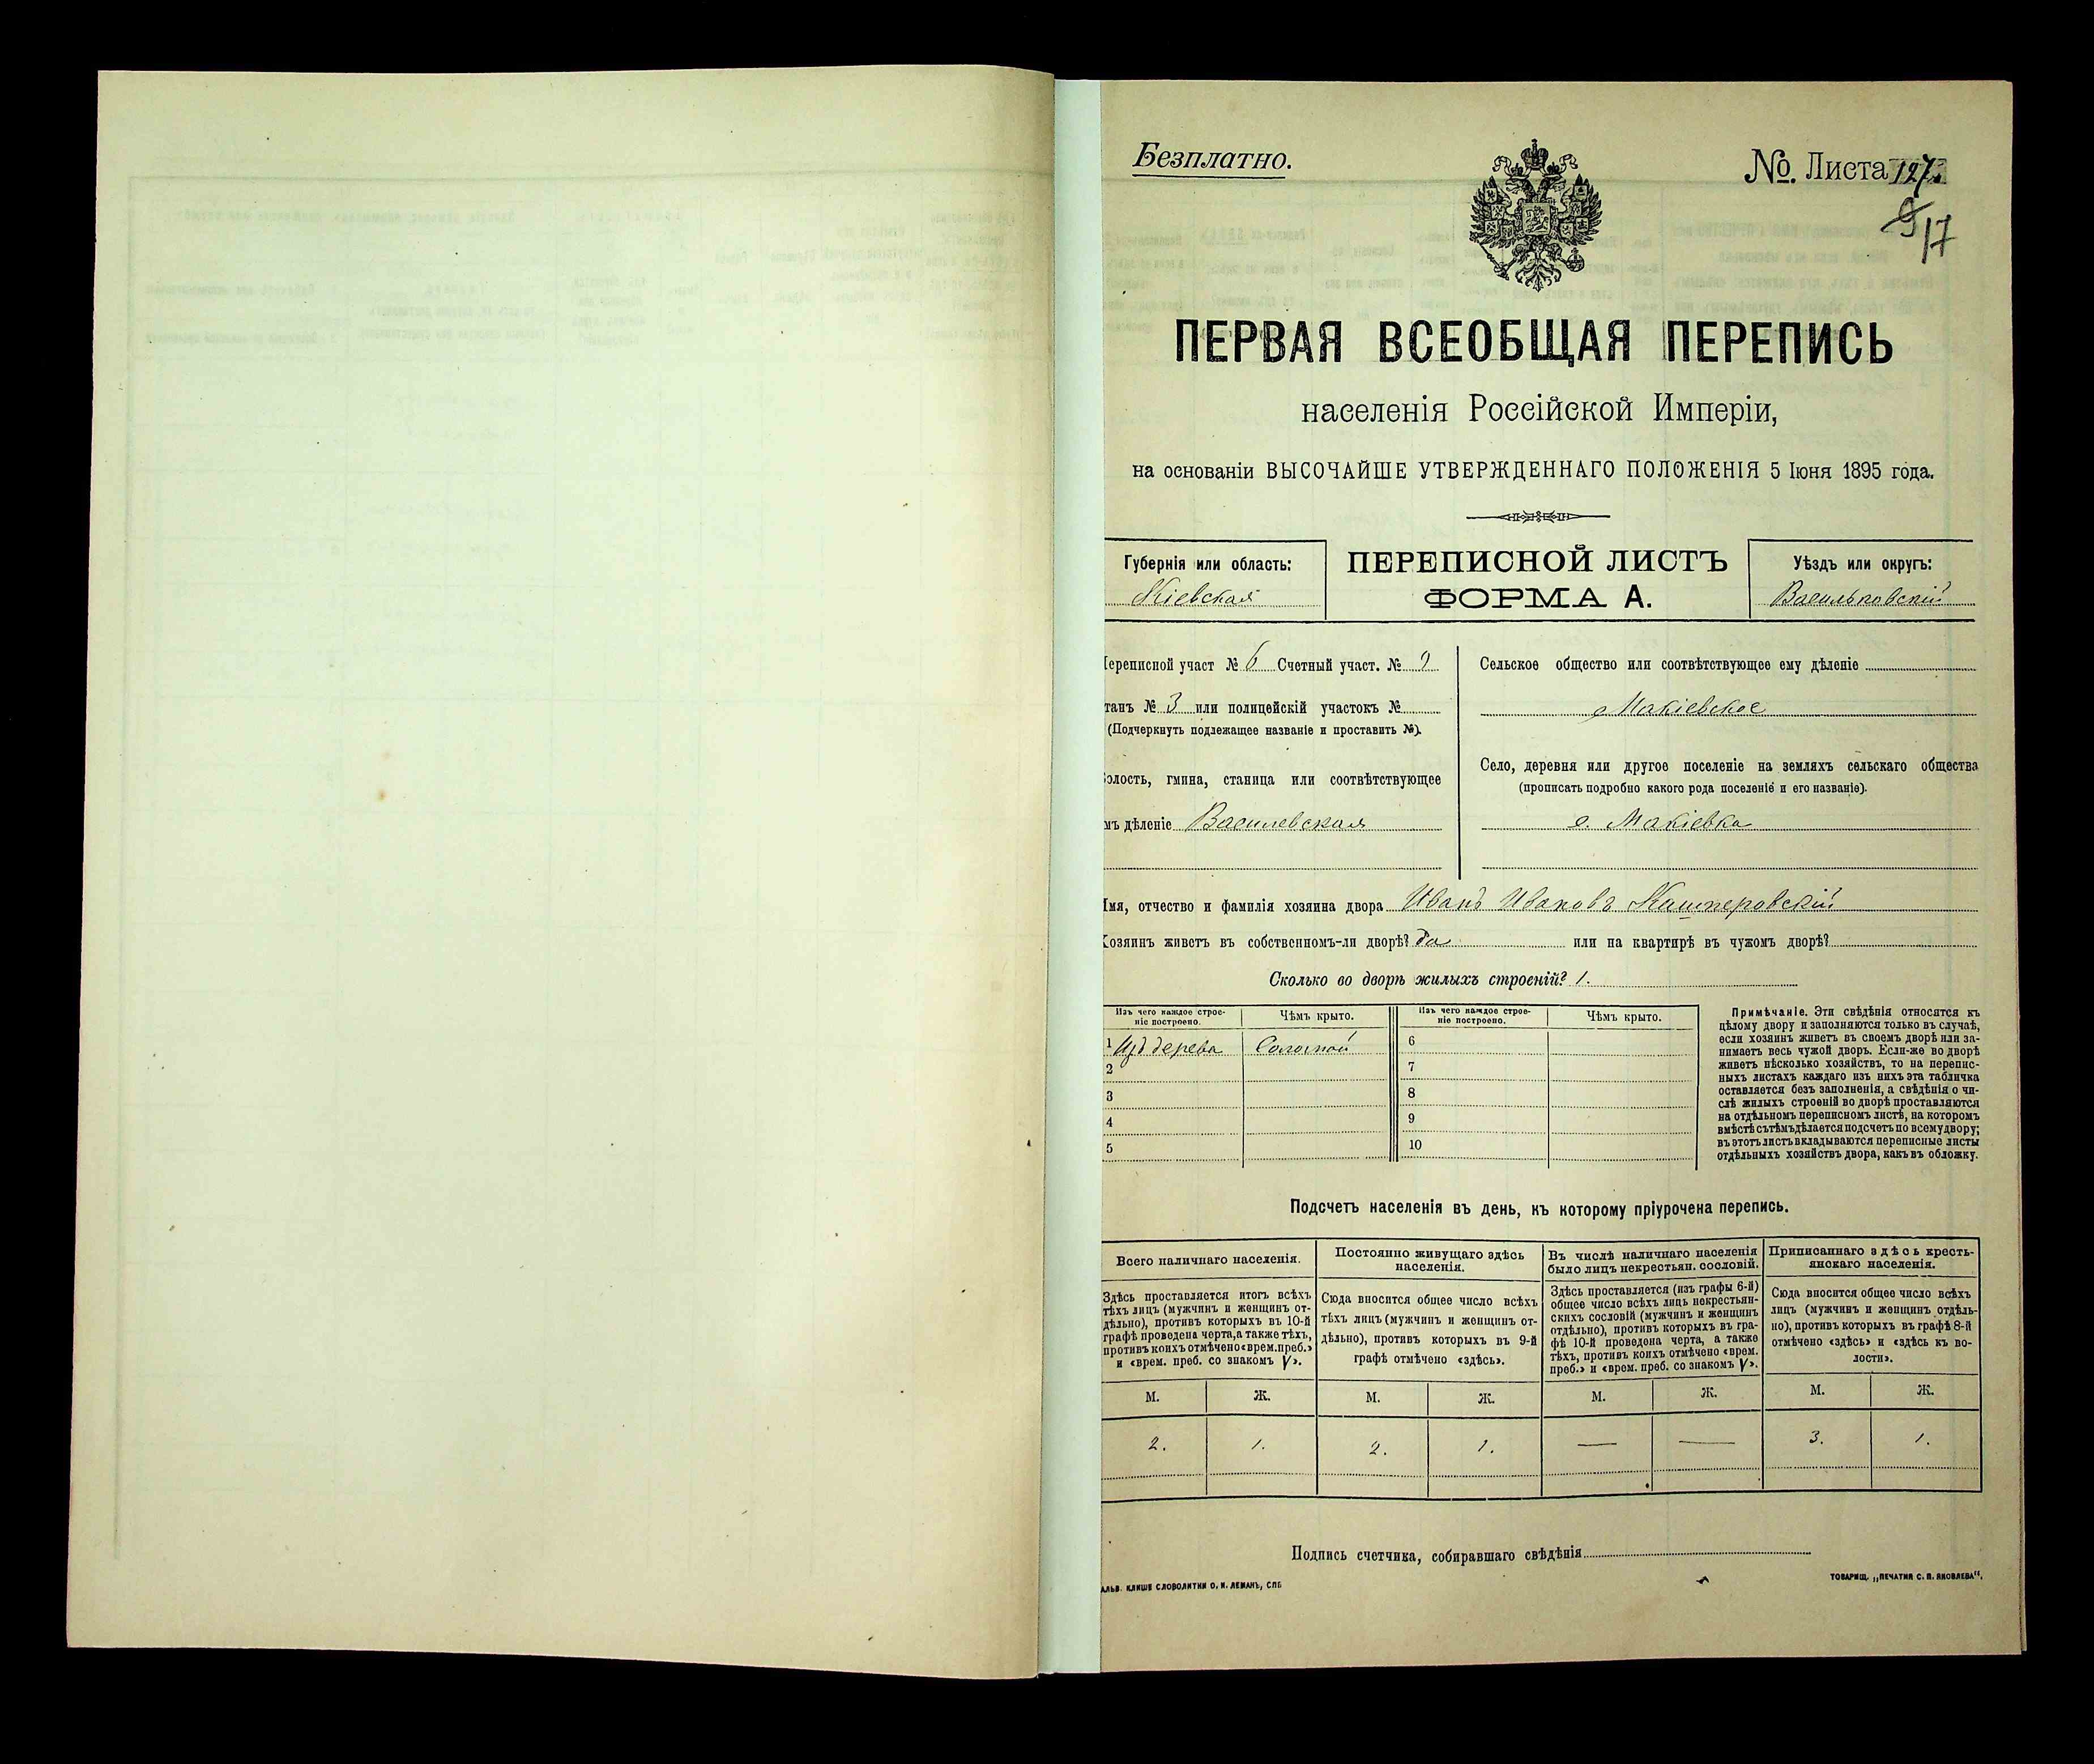 Безплатно.
№. Листа 127.
9/17
ПЕРВАЯ ВСЕОБЩАЯ ПЕРЕПИСЬ
населенія Россійской Имперіи,
на основаніи ВЫСОЧАЙШЕ УТВЕРЖДЕННАГО ПОЛОЖЕНІЯ 5 Іюня 1895 года.
Губернія или область:
Кіевская
ПЕРЕПИСНОЙ ЛИСТЪ
ФОРМА А.
Уѣздъ или округъ:
Васильковскій
Переписной участ № 6 Счетный участ. № 9
танъ № 3 или полицейскій участокъ №
(Подчеркнуть подлежащее названіе и проставить №).
олость, гмина, станица или соотвѣтствующее
мъ дѣленіе Василевская
Сельское общество или соотвѣтствующее ему дѣленіе
Макіевское
Село, деревня или другое поселеніе на земляхъ сельскаго общества
(прописать подробно какого рода поселеніе и его названіе).
с. Макіевка
Имя, отчество и фамилія хозяина двора Иванъ Ивановъ Кашперовскій
Хозяинъ живетъ въ собственномъ-ли дворѣ? да или на квартирѣ въ чужомъ дворѣ?
Сколько во дворѣ жилыхъ строеній? 1.
Изъ чего каждое строе-
ніе построено.
Чѣмъ крыто.
Изъ чего каждое строе-
ніе построено.
Чѣмъ крыто.
1 Изъ дерева Соломой
2
3
4
5
6
7
8
9
10
Примѣчаніе. Эти свѣдѣнія относятся къ
цѣлому двору и заполняются только въ случаѣ,
если хозяинъ живетъ въ своемъ дворѣ или за-
нимаетъ весь чужой дворъ. Если-же во дворѣ
живетъ нѣсколько хозяйствъ, то на перепис-
ныхъ листахъ каждаго изъ нихъ эта табличка
оставляется безъ заполненія, а свѣдѣнія о чи-
слѣ жилыхъ строеній во дворѣ проставляются
на отдѣльномъ переписномъ листѣ, на которомъ
вмѣстѣ съ тѣмъ дѣлается подсчетъ по всему двору;
въ этотъ листъ вкладываются переписные листы
отдѣльныхъ хозяйствъ двора, какъ въ обложку.
Подсчетъ населенія въ день, къ которому пріурочена перепись.
Всего наличнаго населенія.
Здѣсь проставляется итогъ всѣхъ
тѣхъ лицъ (мужчинъ и женщинъ от-
дѣльно), противъ которыхъ въ 10-й
графѣ проведена черта, а также тѣхъ,
противъ коихъ отмѣчено «врем. преб.»
и «врем. преб. со знакомъ V».
Постоянно живущаго здѣсь
населенія.
Сюда вносится общее число всѣхъ
тѣхъ лицъ (мужчинъ и женщинъ от-
дѣльно), противъ которыхъ въ 9-й
графѣ отмѣчено «здѣсь».
Въ числѣ наличнаго населенія
было лицъ некрестьян. сословій.
Здѣсь проставляется (изъ графы 6-й)
общее число всѣхъ лицъ некрестьян-
скихъ сословій (мужчинъ и женщинъ
отдѣльно), противъ которыхъ въ гра-
фѣ 10-й проведена черта, а также
тѣхъ, противъ коихъ отмѣчено «врем.
преб.» и «врем. преб. со знакомъ V».
Приписаннаго здѣсь кресть-
янскаго населенія.
Сюда вносится общее число всѣхъ
лицъ (мужчинъ и женщинъ отдѣль-
но), противъ которыхъ въ графѣ 8-й
отмѣчено «здѣсь» и «здѣсь къ во-
лости».
М. Ж. М. Ж. М. Ж. М. Ж.
2. 1. 2. 1. — — 3. 1.
Подпись счетчика, собиравшаго свѣдѣнія
АЛЬВ. КЛИШЕ СЛОВОЛИТНИ О. И. ЛЕМАНЪ, СПБ
ТОВАРИЩ. „ПЕЧАТНЯ С. П. ЯКОВЛЕВА“.